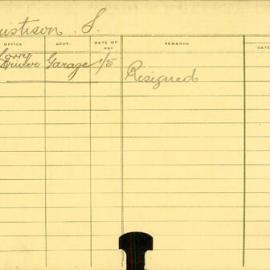 ustison S.
OFFICE DEPT. DATE OF REMARKS DATE
Lorry
Driver Garage 1/5 Resigned